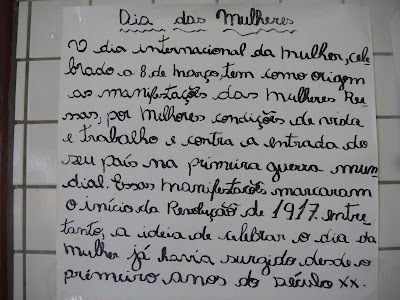 Dia das Mulheres
O dia internacional da mulher, cele
brado a 8 de março, tem como origem
as manifestações das mulheres Rus
sas, por melhores condições de vida
e trabalho e contra a entrada do
seu país na primeira guerra mun
dial. Essas manifestações marcaram
o início da Revolução de 1917. entre
tanto, a ideia de celebrar o dia da
mulher já havia surgido desde o
primeiro anos do século XX.